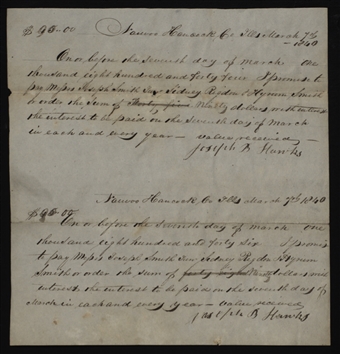 $ 95-00 Nauvoo Hancock Co Ills March 7th
- 1840
On or before the seventh day of march one
thousand eight hundred and forty four I promise to
pay Mssrs Joseph Smith Jun Sidney Rigdon & Hyrum Smith
or order the sum of dollars with interest
the interest to be paid on the seventh day of march
in each and every year - value received -
Joseph B Hawks
Nauvoo Hancock Co Ills March 7th 1840
$95-00
On or before the seventh day of march one
thousand eight hundred and forty six I promis
to pay Mssrs Joseph Smith Jun Sidney Rigdon & Hyrum
Smith or order the sum of dollars with
interest the interest to be paid on the seventh day of
march in each and every year - value received
Joseph B Hawks